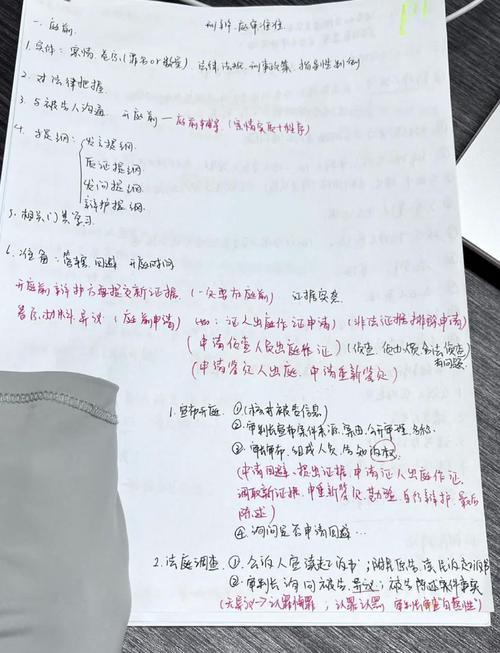 刑辩庭审准备
一、庭前
1.实体：案情、卷宗(罪名or数量)、法律法规、刑事政策、指导性判例
2.对法律把握
3.与被告人沟通 开庭前—庭前辅导(案情实质+程序)
4.提纲：发言提纲
质证提纲
发问提纲
辩护提纲
5.相关门类学习
6.准备：管辖、回避、开庭时间
开庭前辩护方要提交新证据 (一定要在庭前) 证据突袭
管辖 异议(庭前申请) 证人出庭作证申请) (非法证据排除申请)
(申请侦查人员出庭作证)
有问题
(申请鉴定人出庭、申请重新鉴定)
1.宣布开庭 ①核对被告信息
②审判长宣布案件来源、案由、公开审理
③宣布 组成人员、告知诉权
(申请回避、提出证据、申请证人出庭作证、
调取新证据、申重新鉴定、勘验、自行辩护、最后
陈述)
④询问是否申请回避…
2.法庭调查 ①公诉人宣读起诉书；附民原告
②审判长询问被告异议；被告陈述案件事实
(无异议→认罪 ；认罪认罚，审判长审查"自愿性")